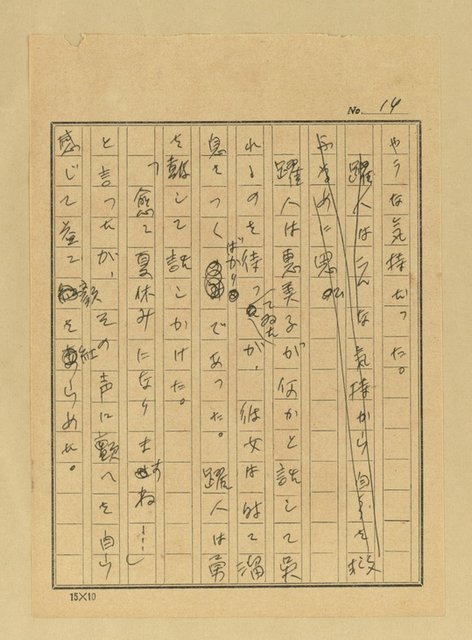 No. 14
やうな気持だった。
躍人はこんな気持から自分を救
ふために思
躍人は恵美子が何かと話して呉
れるのを待ってゐたが、彼女は時て溜
息てつくばかりであった。躍人は勇
を鼓して話しかけた。
「愈て夏休みになりますね……」
と言ったが、その声に顫へを自ら
感じて益て顔を紅らめた。
15×10